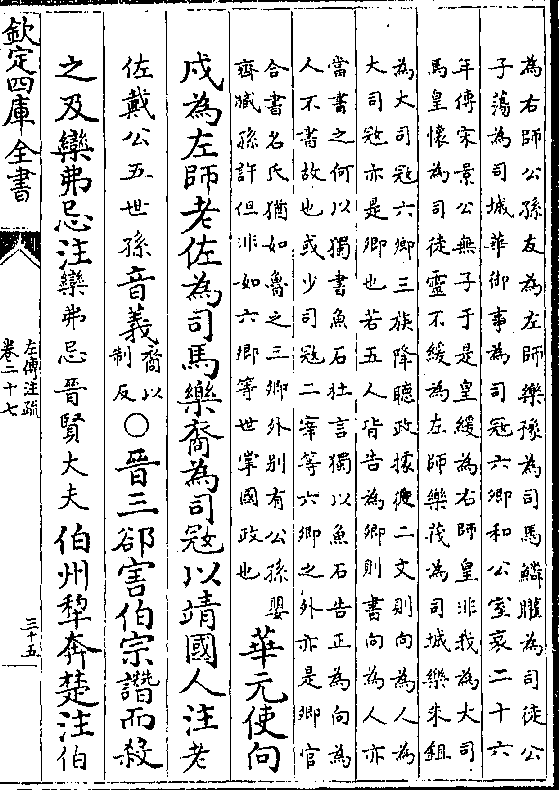 為右師公孫友為左師樂豫為司馬鱗矔為司徒公
子蕩為司城華御事為司寇六卿和公室哀二十六
年傳宋景公無子于是皇緩為右師皇非我為大司
馬皇懷為司徒靈不緩為左師樂茷為司城樂朱鉏
為大司寇六卿三族降聽政據彼二文則向為人為
大司寇亦是卿也若五人皆告為卿則書向為人亦
當書之何以獨書魚石杜言獨以魚石告正為向為
人不書故也或少司寇二宰等六卿之外亦是卿官
合書名氏猶如魯之三卿外別有公孫嬰
齊臧孫許但非如六卿等世掌國政也
華元使向
戍為左師老佐為司馬樂裔為司寇以靖國人注老
佐戴公五世孫音義裔以
制反○晉三郤害伯宗譖而殺
之及欒弗忌注欒弗忌晉賢大夫伯州犁奔楚注伯
欽定四庫全書
左傳注疏
卷二十七
三十五